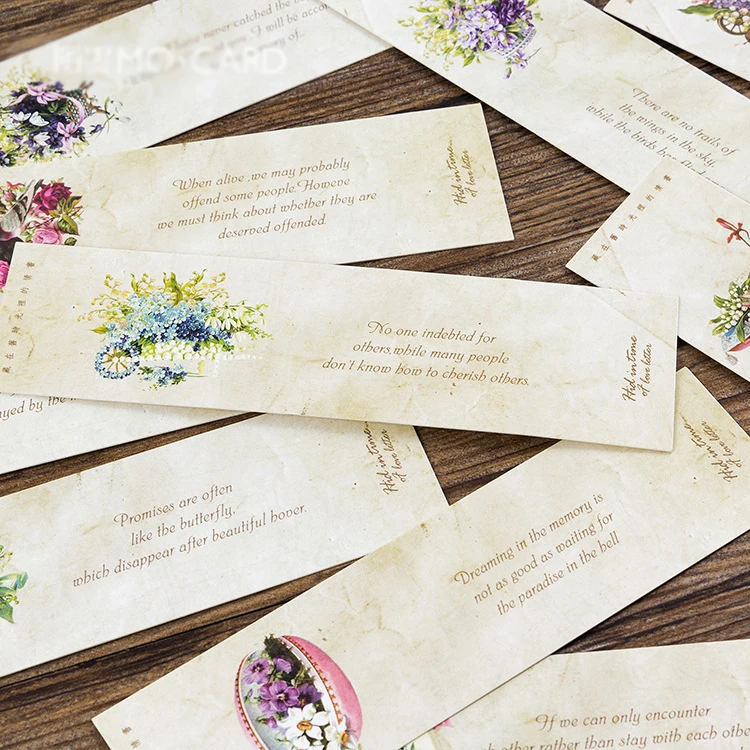 MO CARD
never catched the
I will be acco
of..
There are no trails of
the wings in the sky,
while the birds
When alive ,we may probably
offend some people.Howeve
we must think about whether they are
deserved offended.
Hid in time
of love letter
藏在舊時光裡的情書
No one indebted for
others,while many people
don't know how to cherish others.
Hid in time
of love letter
藏在舊時光裡的情書
ayed by the
Promises are often
like the butterfly,
which disappear after beautiful hover.
Hid in time
of love letter
Dreaming in the memory is
not as good as waiting for
the paradise in the hell
Hid in time
of love letter
If we can only encounter
other rather than stay with each othe